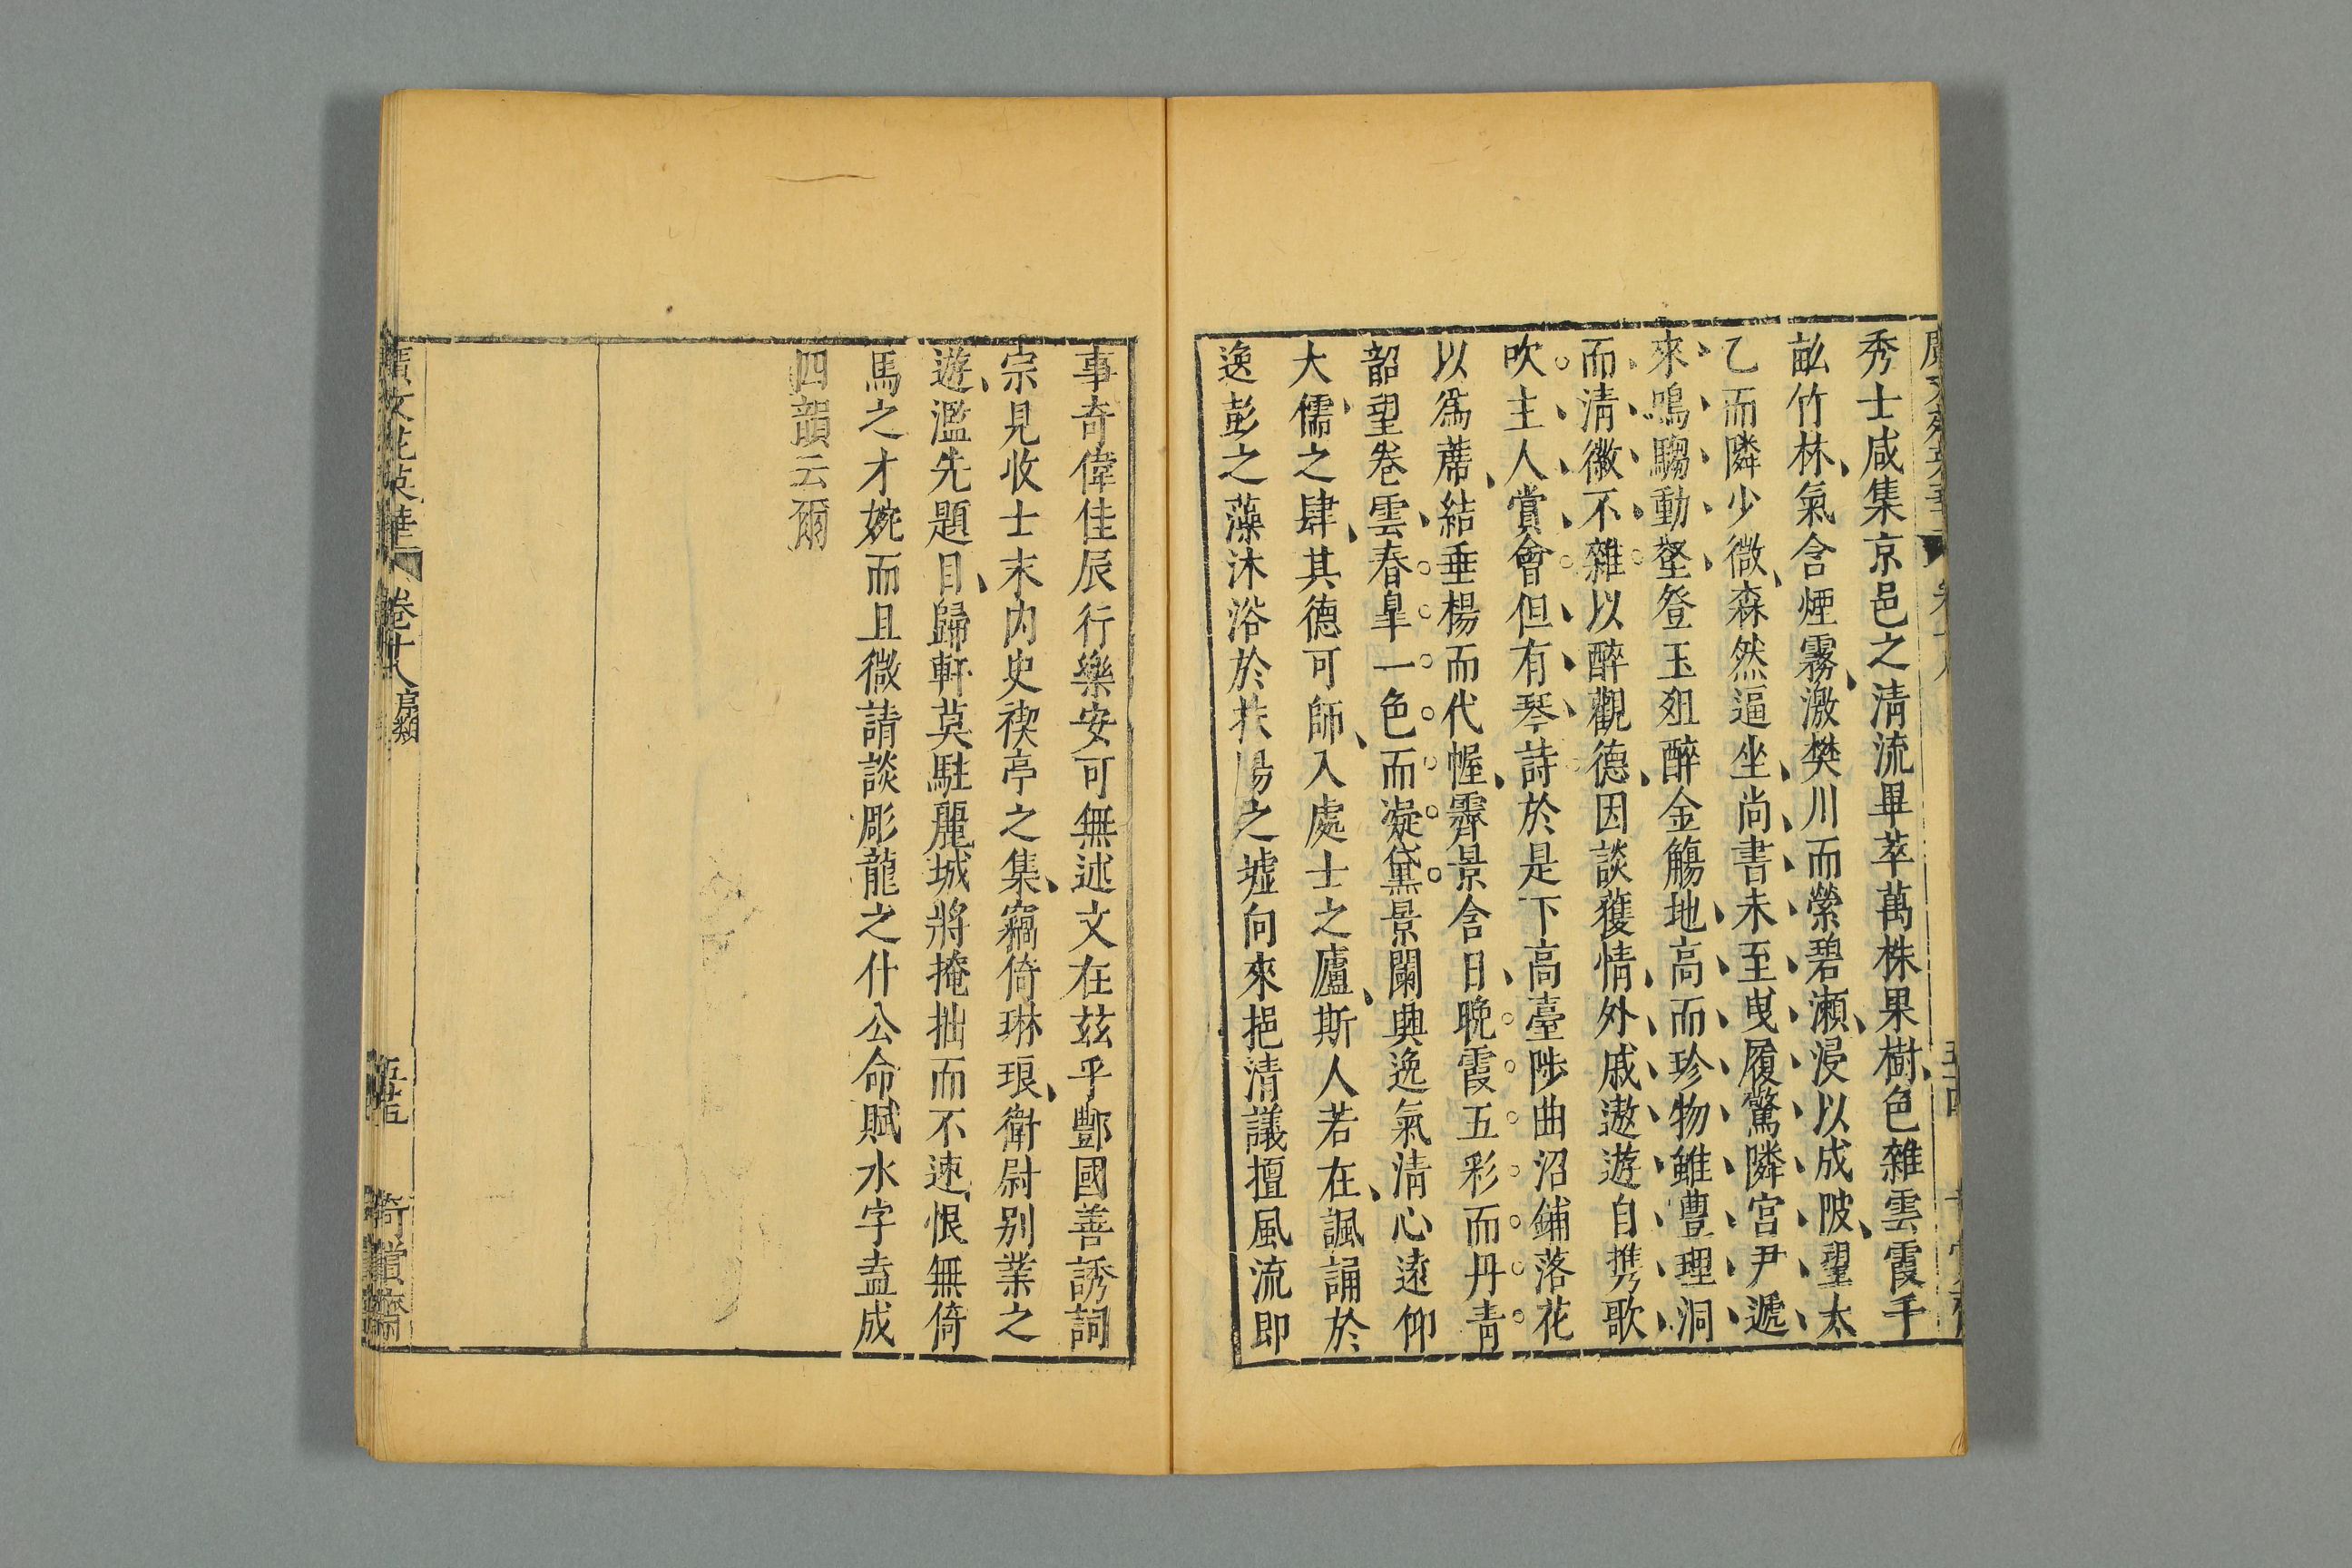 秀士咸集京邑之淸流畢萃萬株果樹色雜雲霞千
畝竹林氣含煙霧激樊川而縈碧瀨浸以成陂望太
乙而隣少微森然逼坐尚書未至曳履驚隣宫尹遞
來鳴騶動壑登玉俎醉金觴地高而珍物雖豊理洞
而清徽不雜以醉觀德因談獲情外戚遨遊自携歌
吹主人賞會但有琴詩於是下高臺陟曲沼鋪落花
以爲蓆結垂楊而代幄霽景含日晚霞五彩而丹青
韶望卷雲春臯一色而凝黛景闌興逸氣清心遠仰
大儒之肆其德可師入處士之廬斯人若在諷誦於
逸彭之藻沐浴於扶陽之墟向來挹清議擅風流即
事奇偉佳辰行樂安可無述文在茲乎酆國善誘詞
宗見收士末内史禊亭之集竊倚琳琅衛尉别業之
遊濫先題目歸軒莫駐麗城將掩拙而不速恨無倚
馬之才婉而且微請談彫龍之什公命賦水字盍成
四韻云爾
廣文苑英華 卷十八 序類 五十五 倚賞齋